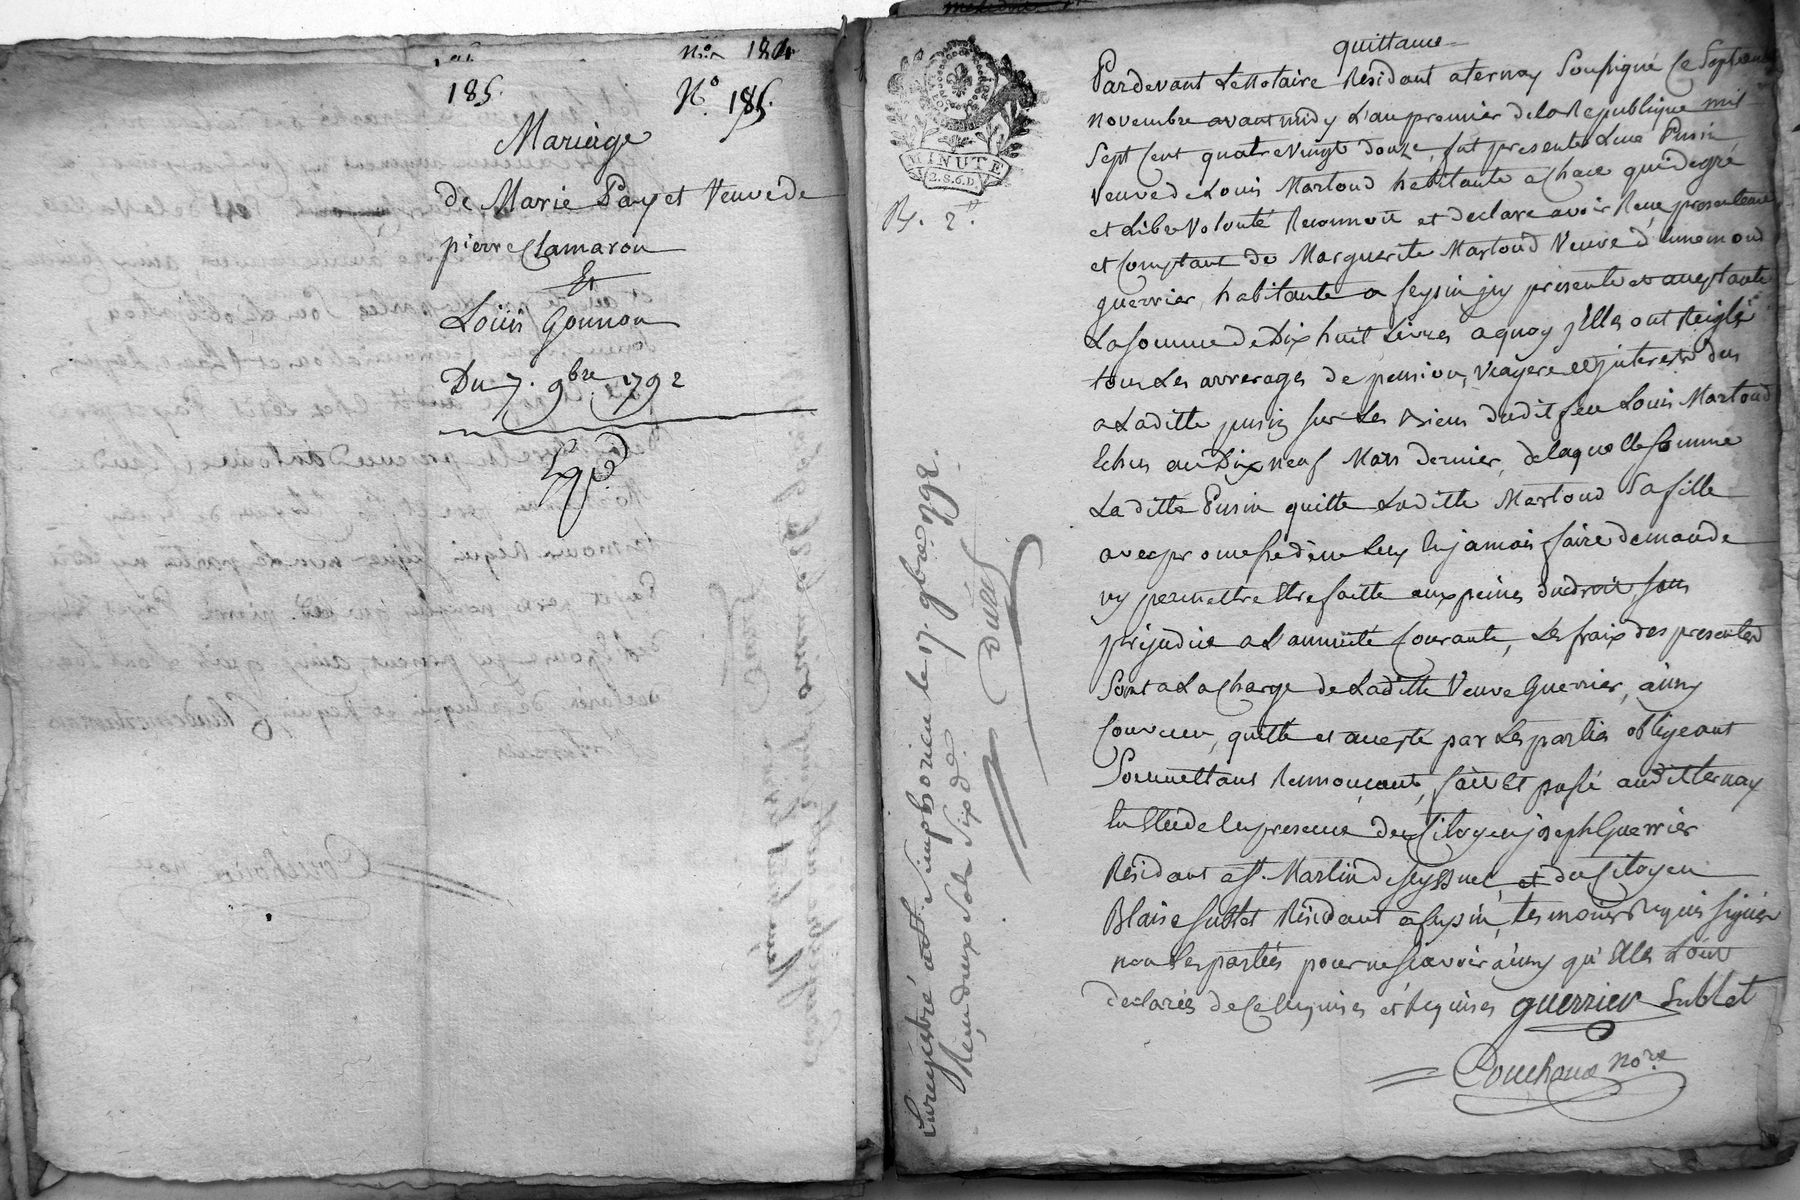 N.º 184
185.
N.º 185.
Mariage
de Marie Payet Veuve de
pierre Clamaron
Et
Loüis Gonnon
Du 7. 9bre. 1792
Exp.d
MINUTE
2.S.6.D.
R. 2.#
Enregistré a St. Simphorien le 17. 9bre 1792.
Reçu deux sols six d.
Duvers
quittance
Pardevant Le Notaire Résidant a ternay Soussigné Ce Sept
novembre avant midy L'an premier de la Republique mil
Sept Cent quatre vingt douze, fut presente Pusin
Veuve de Louis Martoud habitante a Chace qui de gré
et Libre Volonté Reconnoit et declare avoir Reçu presentement
et Comptant de Marguerite Martoud Veuve d'ennemond
guerrier, habitante a feysin jcy presente et aceptante
La somme de Dix huit Livres a quoy Elles ont Reiglé
tous Les arrerages de pension, Viagere et jnterests dus
a Laditte pusin sur Les Biens dudit feu Louis Martoud
Echus au Dix neuf Mars dernier, de laquelle somme
La ditte Pusin quitte Laditte Martoud Sa fille
avec promesse de ne Luy En jamais faire demande
ny permettre Etre faitte aux peines du droit sous
prejudice a L'annuité Courante, Les fraix des presentes
Sont a La Charge de Laditte Veuve Guerrier, ainsy
Convenu, quitté et acepté par Les parties obligeant
Soumettant Renonçant, fait Et passé audit ternay
En Etude En presence du Citoyen joseph Guerrier
Résidant a St. Martin de Seyssuel, et du Citoyen
Blaise Sublet Résidant a feysin, temoins Requis signés
non Les parties pour ne Sçavoir ainsy qu'Elles L'ont
declarés de Ce Enquises et Requises guerrier Sublet
Couchoud no.re